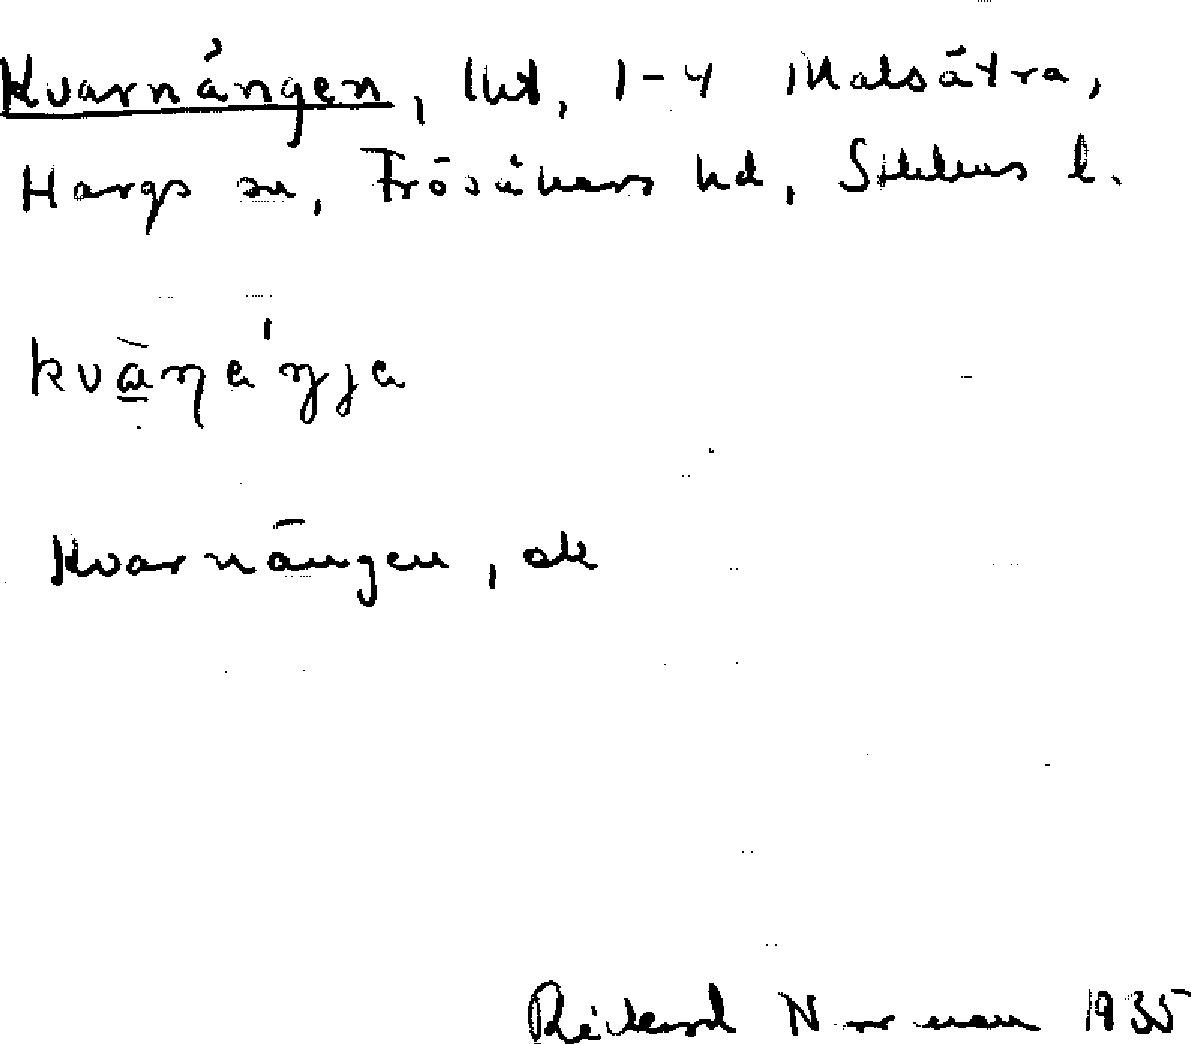 Kvarnängen, lht, 1-4 Malsätra,
Hargs sn, Frösåkers hd, Sthlms l.
kvàɳaŋ́ja
Kvarnängen, åk
Rickard Norman 1935